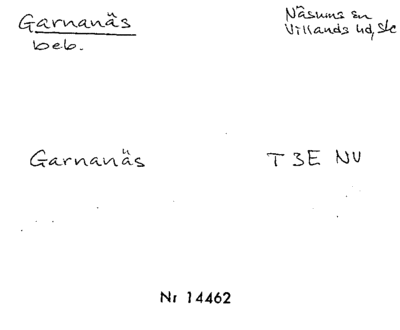 Garnanäs
beb.
Näsums sn
Villands hd, Skå
Garnanäs
T 3E NV
Nr 14462